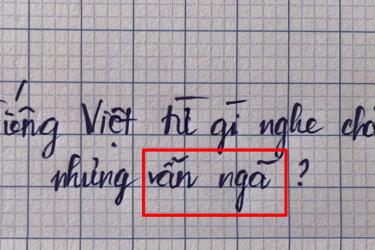 Tiếng Việt từ gì nghe
nhưng vẫn ngã ?